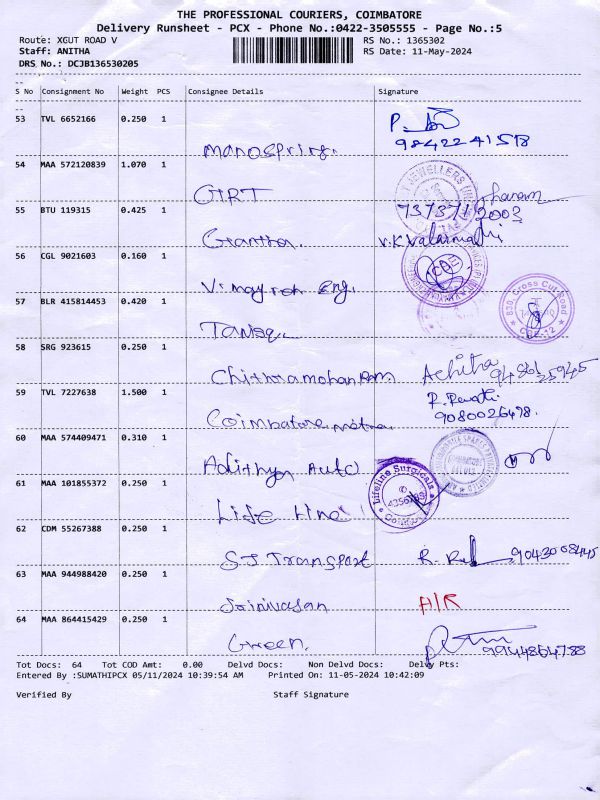 THE PROFESSIONAL COURIERS, COIMBATORE
Delivery Runsheet - PCX - Phone No.:0422-3505555 - Page No.:5
Route: XGUT ROAD V
RS No.: 1365302
Staff: ANITHA
RS Date: 11-May-2024
DRS No.: DCJB136530205
S No Consignment No Weight PCS Consignee Details Signature
53 TVL 6652166 0.250 1
9842241518
Manospring.
54 MAA 572120839 1.070 1
GRT
JEWELLERS
55 BTU 119315 0.425 1
Grantha.
V.K Valarmathi
56 CGL 9021603 0.160 1
Vinayron Eng.
57 BLR 415814453 0.420 1
830, Cross Cut Road
CBE-12
Tanisq.
58 SRG 923615 0.250 1
Chithramohanram
Achitha
59 TVL 7227638 1.500 1
R. Revathi
9080026498.
Coimbatore
60 MAA 574409471 0.310 1
Adithya Auto
61 MAA 101855372 0.250 1
Lifeline Surgicals
Life line
62 CDM 55267388 0.250 1
SJ Transport
9043008445
63 MAA 944988420 0.250 1
Srinivasan
A/R
64 MAA 864415429 0.250 1
Green.
9944864788
Tot Docs: 64 Tot COD Amt: 0.00 Delvd Docs: Non Delvd Docs: Delvy Pts:
Entered By :SUMATHIPCX 05/11/2024 10:39:54 AM Printed On: 11-05-2024 10:42:09
Verified By Staff Signature